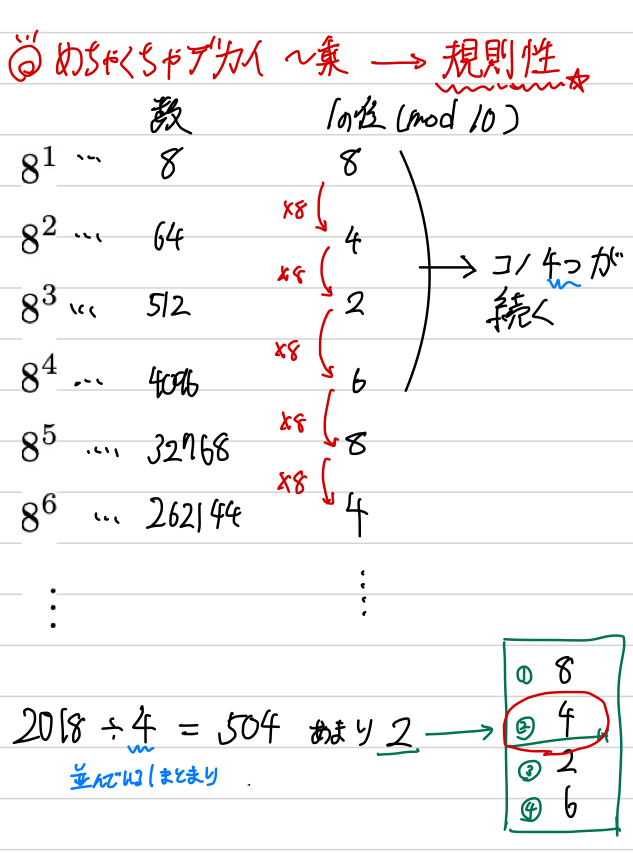 めちゃくちゃデカイ 〜乗 → 規則性☆
数 1の位 (mod 10)
8^1 … 8 8
×8
8^2 … 64 4
×8
8^3 … 512 2
×8
8^4 … 4096 6
×8
8^5 … 32768 8
×8
8^6 … 262144 4
→ コノ 4つが
続く
⋮ ⋮
2018 ÷ 4 = 504 あまり 2 →
並んでいる1まとまり
① 8
② 4
③ 2
④ 6